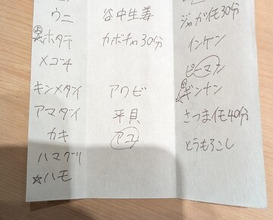 ウニ
黒ホタテ
メゴチ
キンメダイ
アマダイ
カキ
ハマグリ
☆ハモ
谷中生姜
カボチャ30分
アワビ
平貝
アユ
ジャガイモ30分
インゲン
ピーマン
ギンナン
さつまイモ40分
とうもろこし